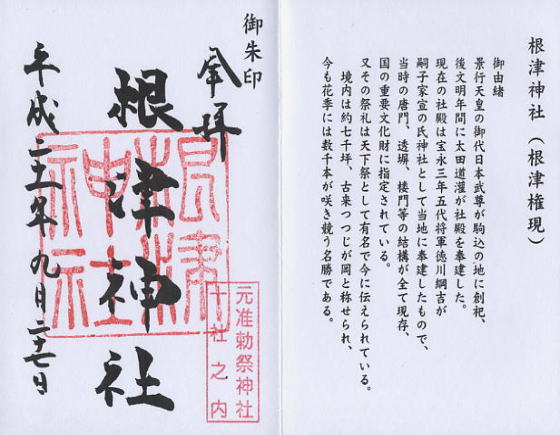 根津神社(根津権現)
御由緒
景行天皇の御代日本武尊が駒込の地に創祀、
後文明年間に太田道灌が社殿を奉建した。
現在の社殿は宝永三年五代将軍徳川綱吉が
嗣子家宣の氏神社として当地に奉建したもので、
当時の唐門、透塀、楼門等の結構が全て現存、
国の重要文化財に指定されている。
又その祭礼は天下祭として有名で今に伝えられている。
境内は約七千坪、古来つつじが岡と称せられ、
今も花季には数千本が咲き競う名勝である。
御朱印
奉拝
根津神社
平成二十一年九月二十七日
根津
神社
元准勅祭神社
十社之内